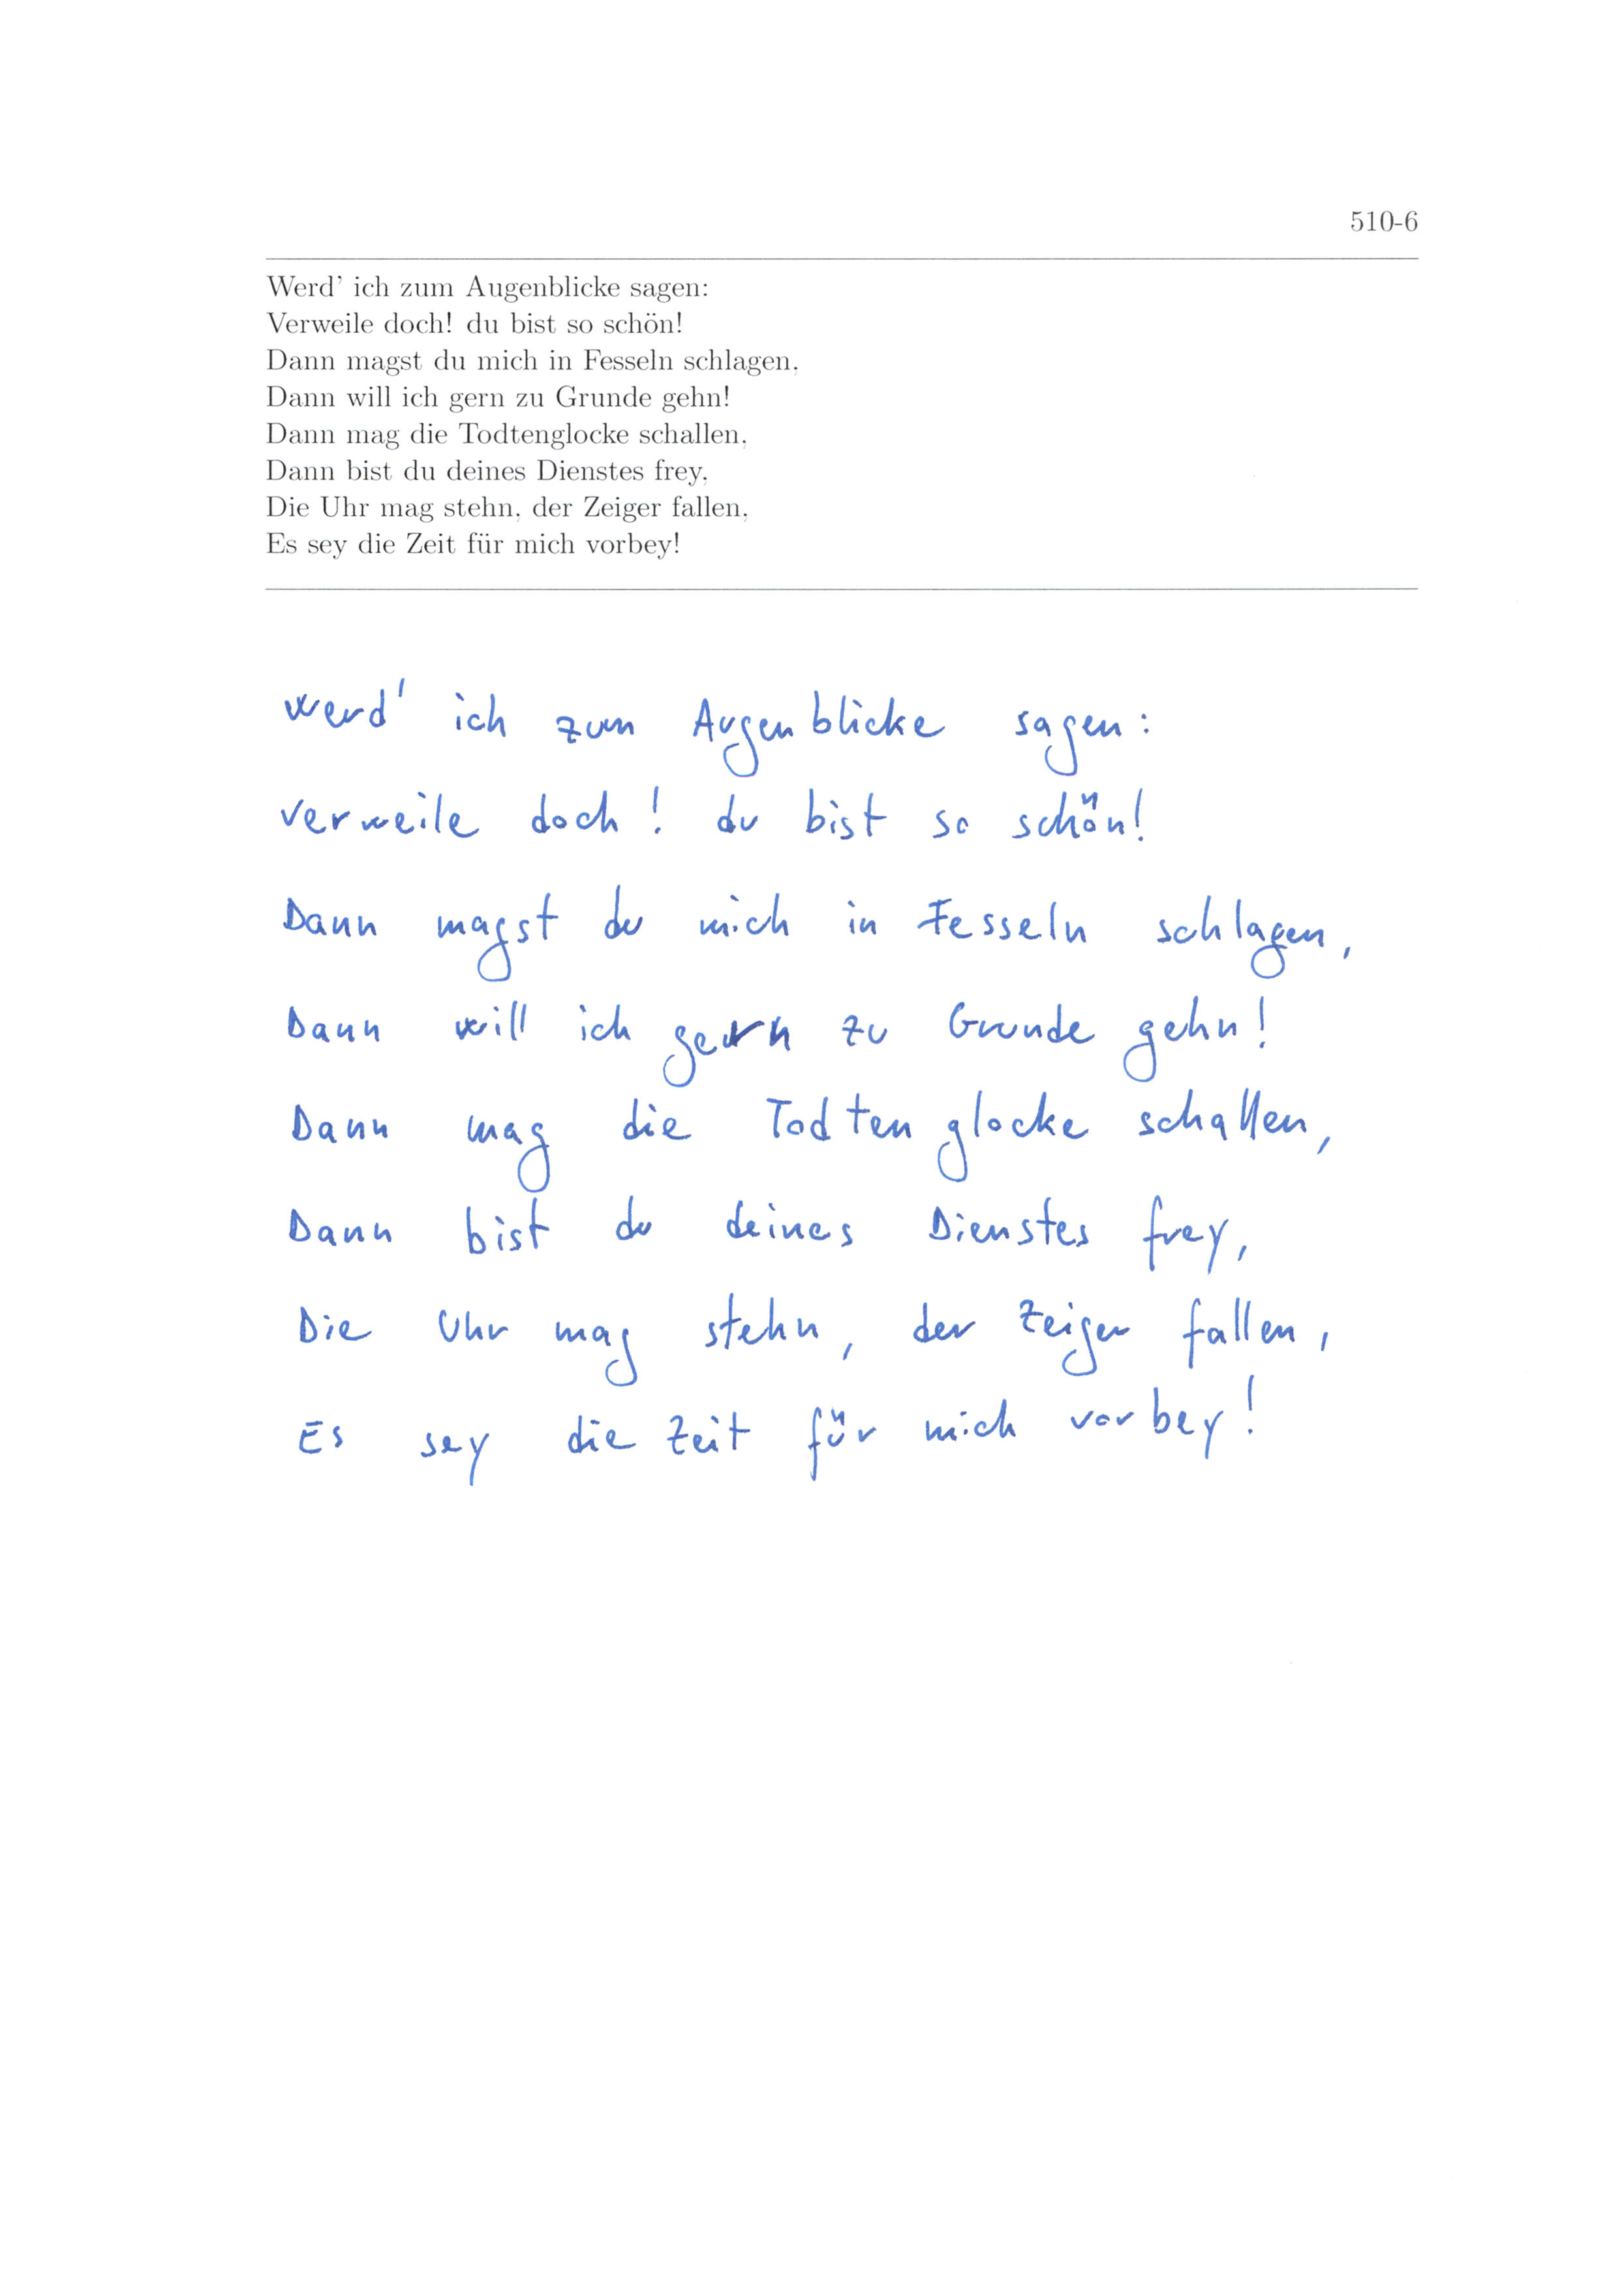 510-6
Werd' ich zum Augenblicke sagen:
Verweile doch! du bist so schön!
Dann magst du mich in Fesseln schlagen,
Dann will ich gern zu Grunde gehn!
Dann mag die Todtenglocke schallen,
Dann bist du deines Dienstes frey,
Die Uhr mag stehn, der Zeiger fallen,
Es sey die Zeit für mich vorbey!
Werd' ich zum Augenblicke sagen:
Verweile doch! du bist so schön!
Dann magst du mich in Fesseln schlagen,
Dann will ich gern zu Grunde gehn!
Dann mag die Todtenglocke schallen,
Dann bist du deines Dienstes frey,
Die Uhr mag stehn, der Zeiger fallen,
Es sey die Zeit für mich vorbey!